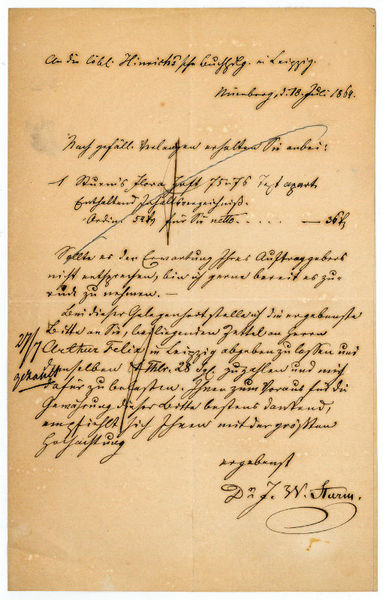 An die löbl. Hinrichs'sche Buchhdlg. in Leipzig.
Nürnberg, d. 18. Juli 1864.
Nach gefäll. Verlangen erhalten Sie anbei:
1 Sturm's Flora Heft 75 u 76 Text apart.
Enthaltend Inhaltsverzeichniß.
Ordin. für Sie netto . . . . — 36
Sollte es der Erwartung Ihres Auftraggebers
nicht entsprechen, bin ich gerne bereit es zu-
rück zu nehmen. —
Bei dieser Gelegenheit stelle ich die ergebenste
Bitte an Sie, beiliegenden Zettel an Herrn
21/7 Arthur Felix in Leipzig abgeben zu lassen und
gezahlt demselben Thlr. 28 zuzahlen und mich
dafür zu belasten. Ihnen zum Voraus für die
Gewährung dieser Bitte bestens dankend,
empfiehlt sich Ihnen mit der größten
Hochachtung
ergebenst
Dr. J. W. Sturm.